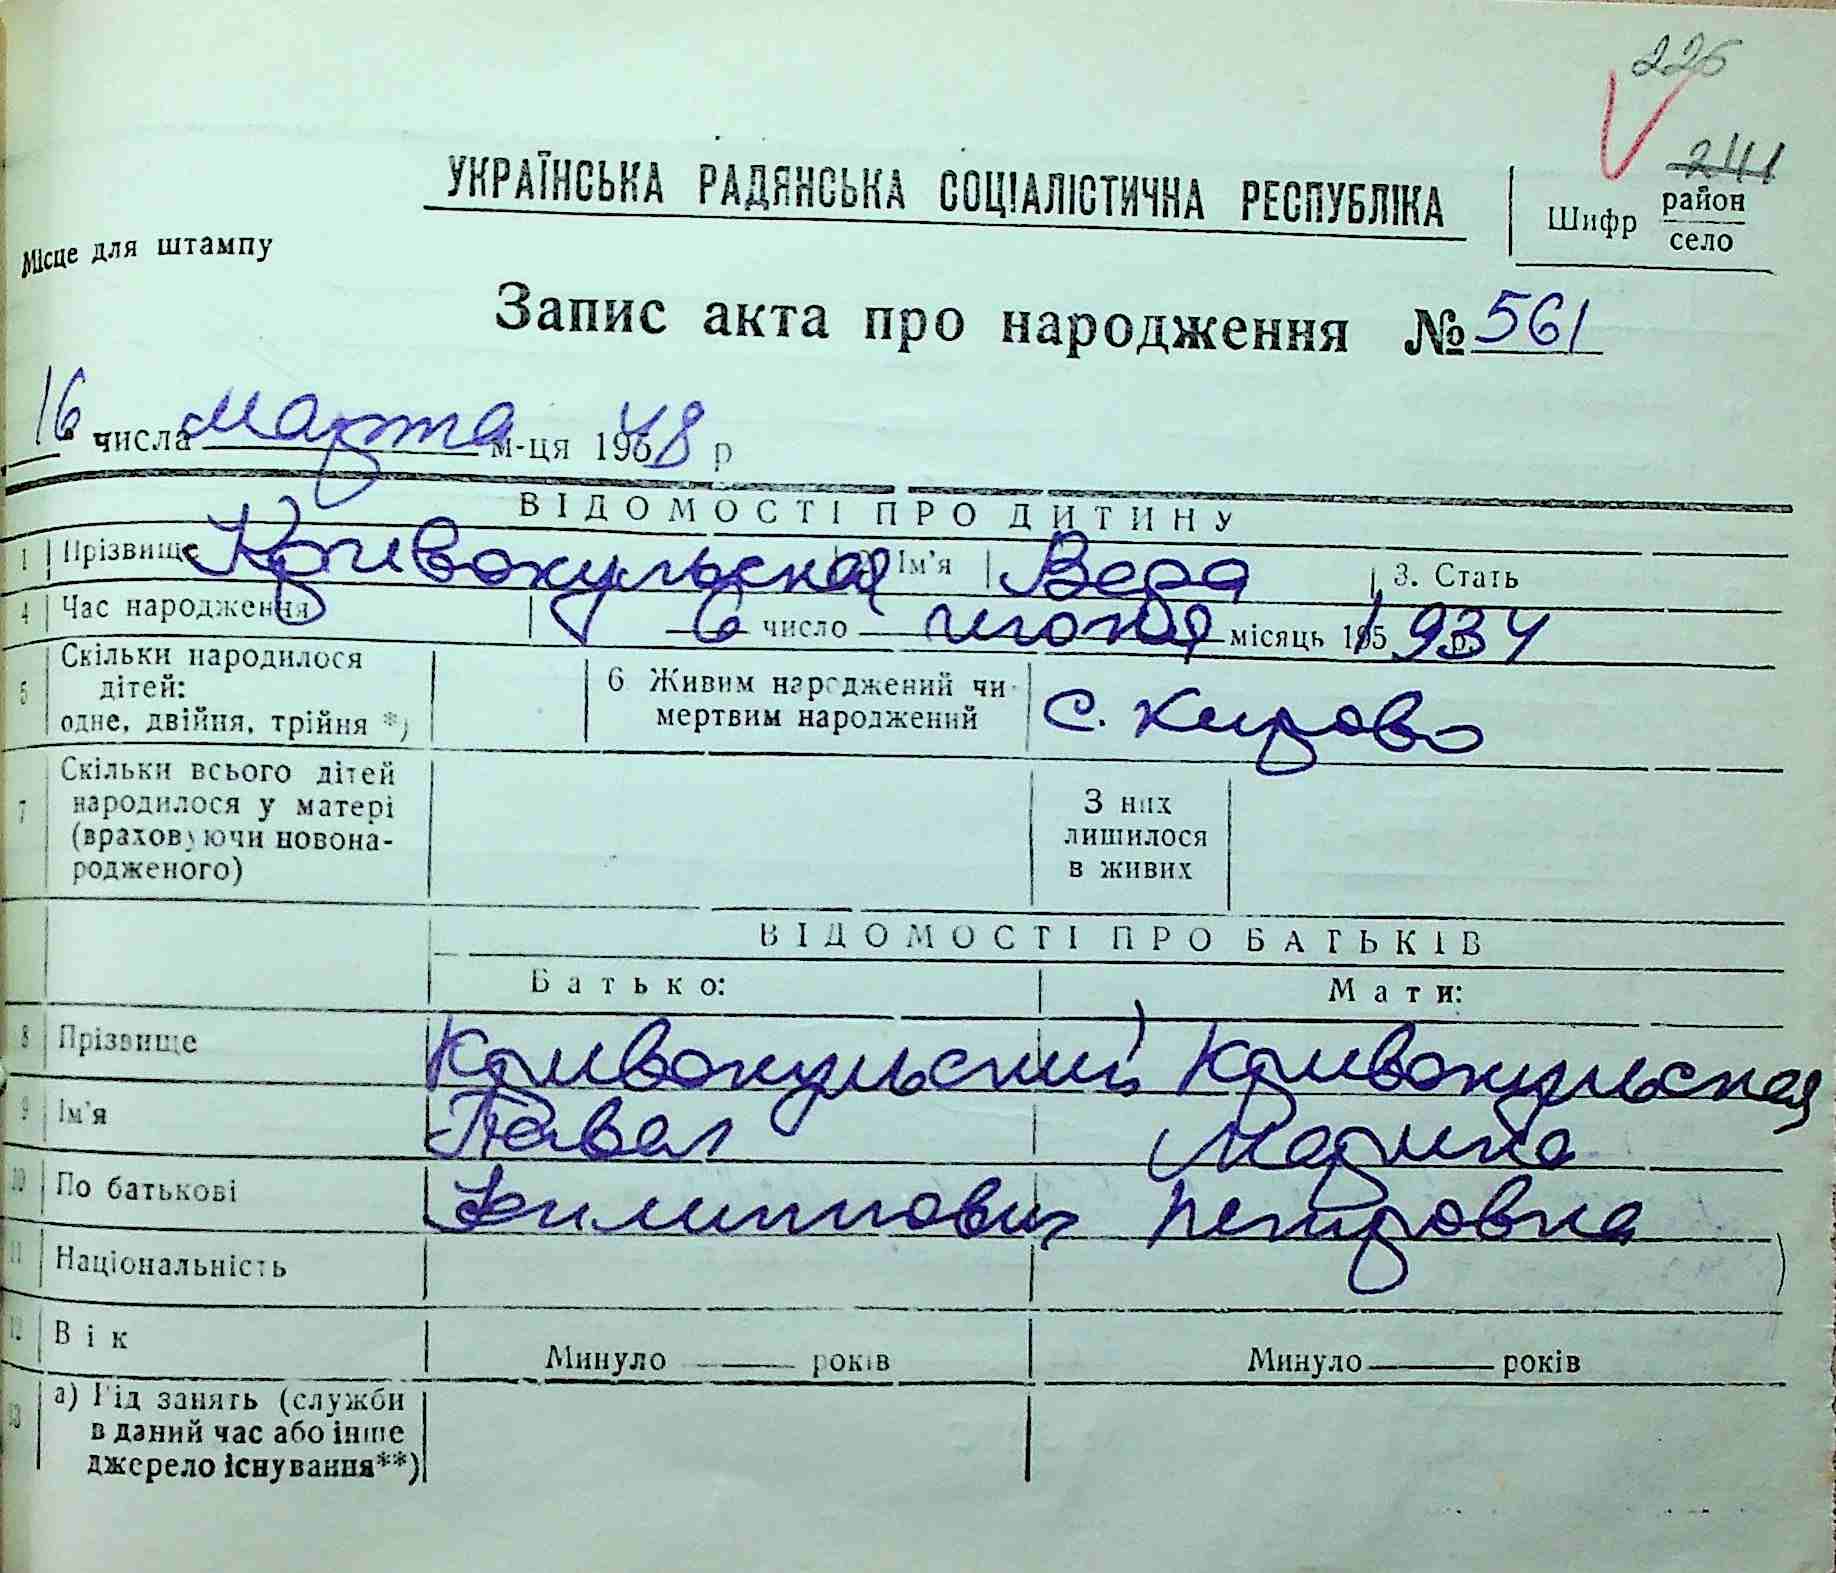 226
241
УКРАЇНСЬКА РАДЯНСЬКА СОЦІАЛІСТИЧНА РЕСПУБЛІКА
Шифр район
село
Місце для штампу
Запис акта про народження № 561
16 числа марта м-ця 1948 р
ВІДОМОСТІ ПРО ДИТИНУ
1 Прізвище Кривокульская Ім'я Вера 3. Стать
4 Час народження 6 число июня місяць 1934
5 Скільки народилося дітей: одне, двійня, трійня *)
6 Живим народжений чи мертвим народжений с. Кирово
7 Скільки всього дітей народилося у матері (враховуючи новонародженого)
З них лишилося в живих
ВІДОМОСТІ ПРО БАТЬКІВ
Батько: Мати:
8 Прізвище Кривокульский Кривокульская
9 Ім'я Павел Марина
10 По батькові Филиппович Петровна
11 Національність
12 Вік Минуло років Минуло років
13 а) Рід занять (служби
в даний час або інше
джерело існування**)